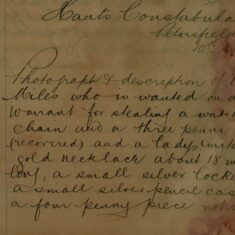 Hants Constabula
Petersfield
Photograph & description of
Miles who is wanted on a
warrant for stealing a watch
chain and a three penn
(recovered) and a lady
gold necklace about 18 in
long, a small silver locke
a small silver pencil cas
a four penny piece not